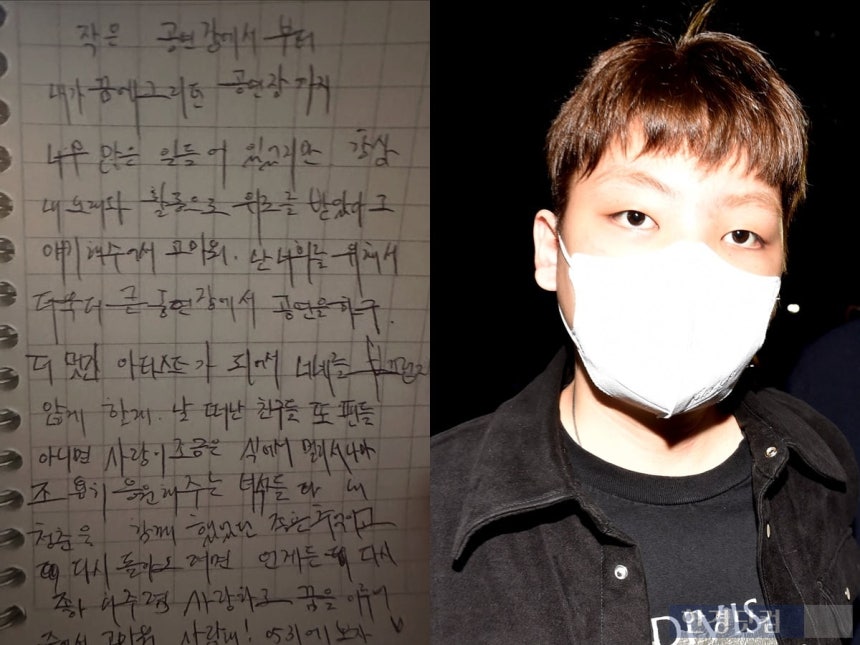 작은 공연장에서 부터
내가 꿈에 그리던 공연장 까지
너무 많은 일들이 있었지만 항상
내 노래와 활동으로 위로를 받았다고
얘기해주어서 고마워. 난 너희를 위해서
더욱더 큰 공연장에서 공연을 하구.
더 멋진 아티스트가 되어서 너네를 부끄럽지
않게 할게. 날 떠난 친구들 또 팬들
아니면 사랑이 조금은 식어서 멀리서나마
조용히 응원해주는 녀석들 다 내
청춘을 함께 했었던 좋은 추억이고
다시 돌아오려면 언제든 다시
사랑하고 꿈을 이루어
줘서 고마워 사랑해! 보자
한경닷컴